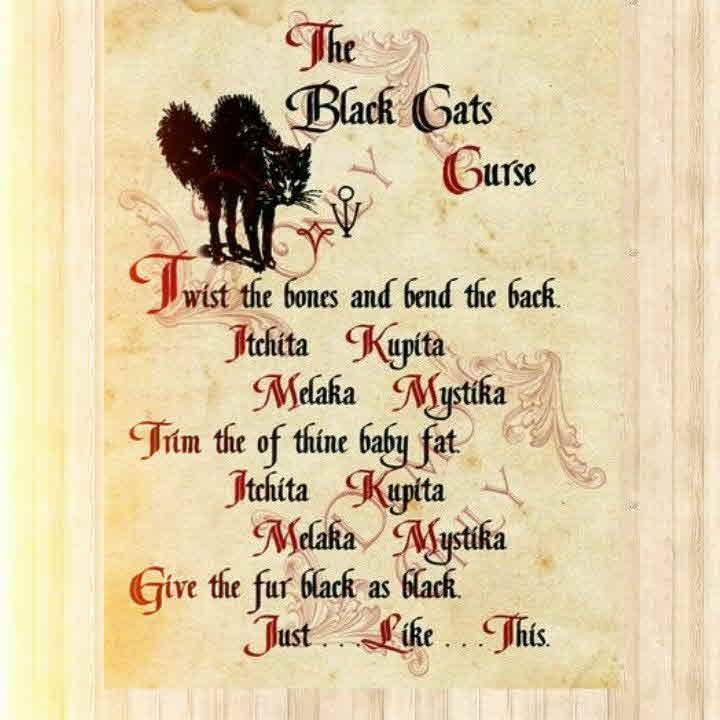 The
Black Cats
Curse
Twist the bones and bend the back.
Itchita Kupita
Melaka Mystika
Trim the of thine baby fat.
Itchita Kupita
Melaka Mystika
Give the fur black as black.
Just . . . Like . . . This.